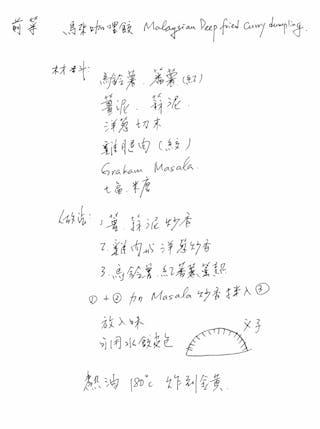 前菜 馬來咖哩餃 Malaysian Deep fried Curry dumpling.
材料:
馬鈴薯、蕃薯(紅)
薑泥、蒜泥
洋蔥切末
雞腿肉(絞)
Graham Masala.
七鱼、米唐
做法: 1. 薑蒜泥炒香
2. 雞肉的洋蔥炒香
3. 馬鈴薯.紅蕃薯蒸熟
①+② 加 Masala 炒香 拌入③
放入味
可用水餃皮包
叉子
熱油 180°C 炸到金黃.